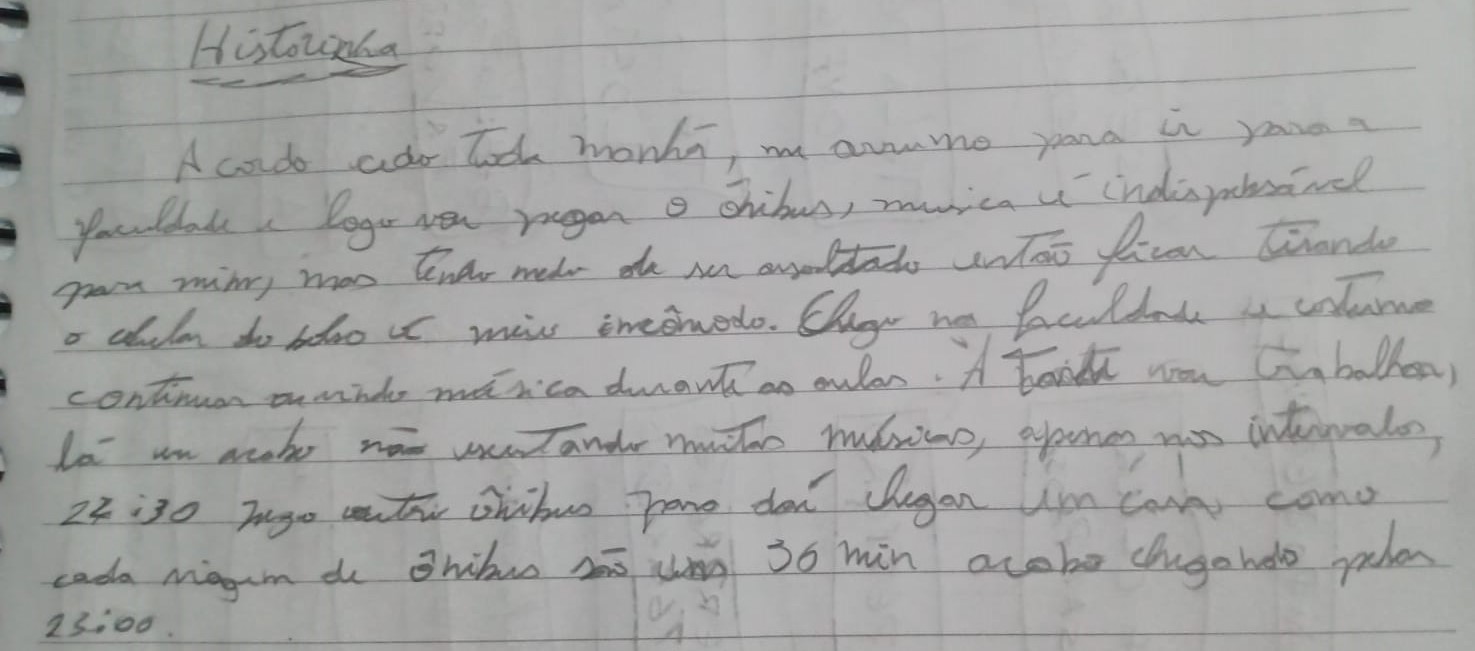 Historinha
Acordo cedo toda manhã, me arrumo para ir para a
faculdade e logo vou pegar o ônibus, musica é indispensável
para mim, mas tenho medo de ser assaltado então ficar tirando
o celular do bolso é meio incômodo. Chego na faculdade e costumo
continuar ouvindo música durante as aulas. À tarde vou trabalhar,
lá eu acabo não escutando muitas músicas, apenas nos intervalos,
22:30 pego outro ônibus para daí chegar em casa, como
cada viagem de ônibus são uns 30 min acabo chegando pelas
23:00.